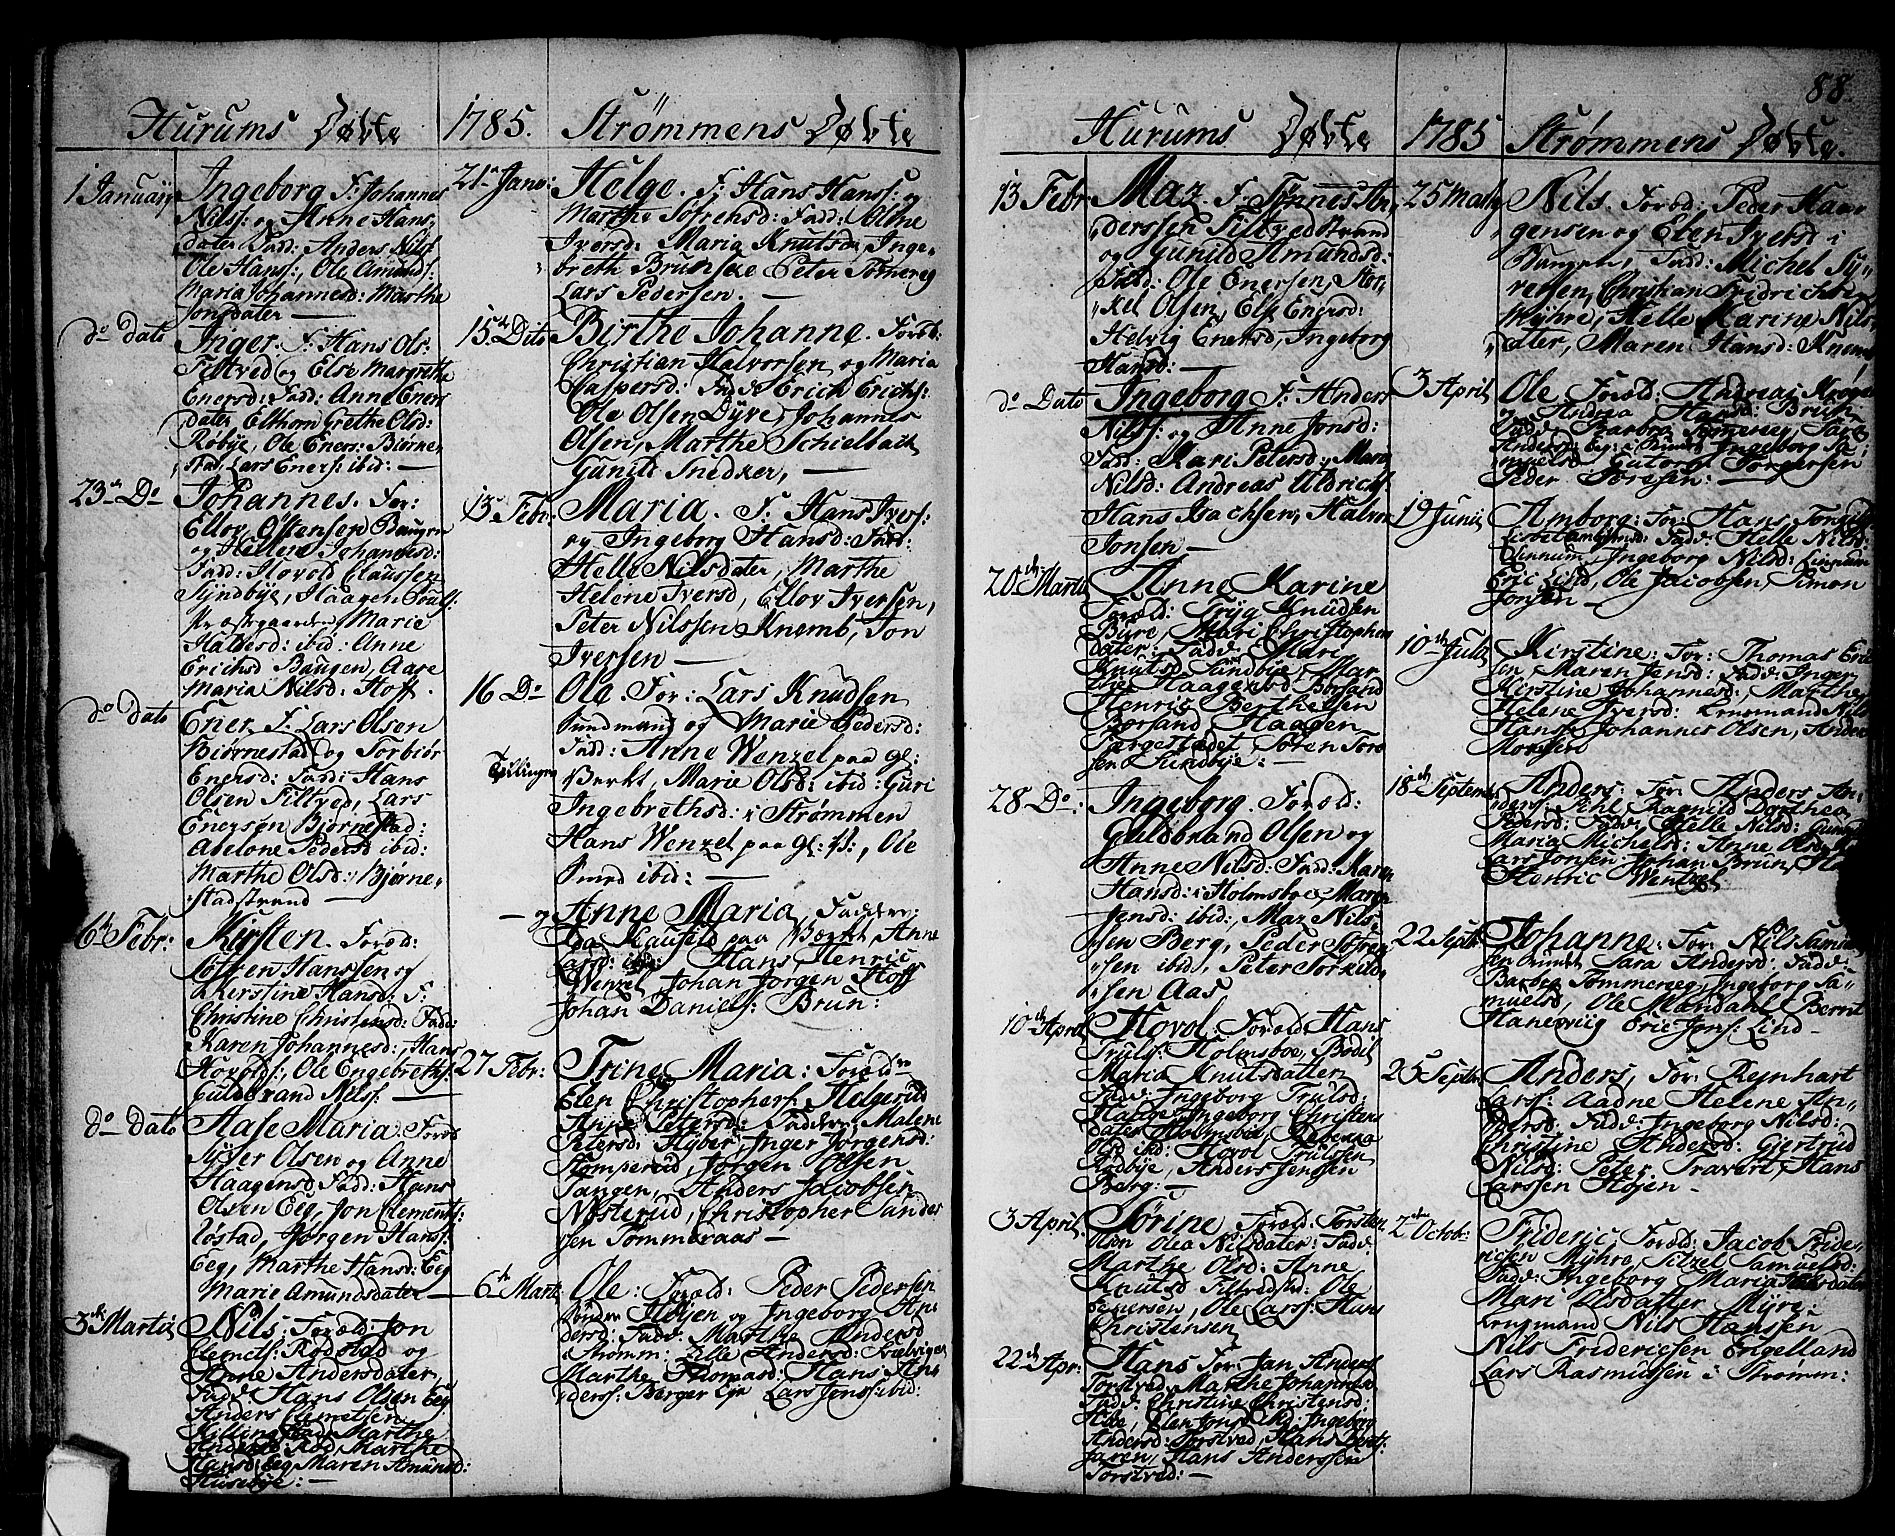 88
Hurums Døbte
1 Januarij
Ingeborg F: Johannes
Nilss: og Anne Hans,
dater Fadd: Anders Nilss
Ole Hanss:, Ole Amunds:
Maria Johannesd: Marthe
Jonsdater —
do dato
Inger. F: Hans Ols:
Filtved og Else Margrethe
Enersd: Fadd: Anne Eners
dater, Grethe Olsd:
Robye, Ole Eners: Biørne,
stad, Lars Eners: ibid: —
23de Do
Johannes. For:
Ellov Ostensen Baugen
og Hellene Johannesd:
Fadd: Hovold Claussen
Syndbye, Haagen Poals:
Marie
Haldesd: ibid: Anne
Erichsd Baugen, Aare
Maria Nilsd: Hoff.
do dato
Ener. F. Lars Olsen
Biørnestad og Torbiør
Enersd: Fadd: Hans
Olsen Filtved, Lars
Enersen Biørnestad:
Abelone Pedersd ibid:
Marthe Olsd: Biørne,
stadstrand —
6te Febr:
Kirsten. Foræd:
Hanssen og
Kierstine Hansd: F:
Christine Christensd: Fadd:
Karen Johannesd:, Hans
Hovolds:, Ole Engebreths:
Guldbrand Nilss: —
do dato
Aase Maria. Foræd
Syver Olsen og Anne
Haagensd: Fadd: Hans
Olsen Eeg, Jon Clements:
Røstad, Jørgen Hanss:
Eeg, Marthe Hansd: Eeg
Marie Amundsdater —
3de Martij
Nils: Foræld: Jon
Clemets: Rødstad og
Anne Andersdater,
Fadd: Hans Olsen Eeg
Anders Clemetsen
Killingstad, Marthe
Andersd: Rød, Marthe
Hansd: Eeg Maren Amunsd:
Husebye: —
1785.
Strømmens Døbte
21de Janv:
Helge. F: Hans Hanss: og
Marthe Sofrensd: Fadd: Olhe
Iversd: Maria Knutsda, Inge,
breth Brunske Peter Tomereg
Lars Pedersen. —
15de Dito
Birthe Johanne. Foræld:
Christian Halvorsen og Maria
Caspersd: Fadd: Erich Erichs:
Ole Olsen Dyve, Johannes
Olsen, Marthe Schielbach
Gunild Snedker, —
13 Febr:
Maria. F. Hans Ivers:
og Ingeborg Hansd: Fadd:
Helle Nilsdater, Marthe
Helene Iversd, Ellov Iversen,
Peter Nilssen Knemb, Jon
Iversen —
16 Do
Ole. For: Lars Knudsen
Sundmand og Marie Pedersd:
Fadd: Anne Wenzel paa gl:
Tvillinger
Verkt, Marie Olsd: ibid: Guri
Ingebrethsd: i Strømmen
Hans Wenzel paa gl: V:, Ole
Smed ibid: —
— og
Anne Maria, Faddere
Ida Kaufeld paa Værket, Anne
Larsd: ibid: Hans Henric
Wenzel Johan Jørgen Hoff
Johan Daniels: Brun:
27 Febr:
Trine Maria: Foræld:
Elen Christophers Helgerud
Anne Petersd: Faddere Malene
Petersd: Hyber, Inger Jørgensd:
Stompereud, Jørgen Olsen
Tangen, Anders Jacobsen
Nøsterud, Christopher Sander
sen Tommeraas —
6te Marti
Ole: Foræld: Peder Pedersen
Høijen og Ingeborg An,
dersd: Fadd: Marthe Andersd
Strømm: Elle Andersd: Svelvigen
Marthe Thomasd: Hans An,
ders: Berger Eje Lars Jonss: ibid:
Hurums Døbte
13 Febr
Maz. F: Tønnes An,
derssen Filtved Strand
og Gunild Amundsd:
Fadd: Ole Enersen, Tor,
kel Olsen, Else Enersd:
Helvig Enersd, Ingeborg
Hansd: —
do Dato
Ingeborg F: Anders
Nilss: og Anne Jonsd:
Fadd: Kari Petersd: Mari
Nilsd: Andreas Uldrichs:
Hans Isachsen, Halvor
Jonsen —
20de Martii
Anne Marine
Foræld: Tryg Knudsen
Bure, Mari Christophen
dater: Fadd: Mari
Knutsd Sundbye, Mar
the Haagensd Borsand
Henric Berthelsen
Borsand, Haagen
Færgestadet, Soren Toro
sen Sundbye: —
28. Do:
Ingeborg. Foræd:
Guldbrand Olsen og
Anne Nilsd: Fadd: Karen
Hansd: i Holmsboe, Maren
Jensd: ibid:, Maz Nils,
sen Berg, Peder Sofren
sen ibid, Peter Torkild,
sen Aas
10de April
Hovol: Foræld: Hans
Truls: Holmsboe, Bodil
Maria Knutsdatter
Fadd: Ingeborg Trulsd:
Ingeborg Christens
dater Holmsboe, Rebekka
Olsd ibd: Hovol Trulssen
Rødbye, Anders Jenssen
Berg: —
3 April
Sørine, Foræld: Torsten
Olsen Olea Nilsdater: Fadd:
Marthe Olsd: Anne
Knutsd Filtvedstrd: Ole
Pedersen, Ole Lars: Hans
Christensen
22de Apr:
Hans For: Jan Anders:
Torstved, Marthe Johannesd
Fadd: Christine Christensd:
Elen Jonsd ibd: Ingeborg
Andersd: Torstved, Hans
Hans Anderssen
Torstved: —
1785
Strømmens Døbte.
25 Martij
Nils. Foræd: Peder Haa,
gensen og Elen Iversd i
Bangen, Fadd: Michel Sy,
versen, Christian Fridrichsen
Myhre, Helle Karine Nils,
dater, Maren Hansd: Knem
3 April
Ole Foræld: Andreas Krogen
og Andrea Hansd: Brun
Fadd: Barbra Sara
Andersd: Ingeborg Sa,
muelsd Gutorm Jørgersen
Peder Joressen: —
19 Junij
Amborg: For: Hans Tonsen
Fadd: Helle Nilsd:
Linnum, Ingeborg Nilsd: Linnum
Eric Lind, Ole Jacobsen, Simon
Jonsen —
10de Julii
Kirstine: For: Thomas Eric
sen, Maren Jensd: Fadd: Inger
Kirstine Johannesd: Marthe
Helene Iversd: Lensmand Nils
Hans: Johannes Olsen, Anders
Monssen
18de Septembr
Anders: For: Anders An,
ders: Ragnild Dorthea
Pedersd: Fadd: Helle Nilsd:
Maria Michelsd: Anne Olsd
Lars Jonsen Johan Brun,
Henric Wentzel
22 Septb:
Johanne: For: Nils Samuel
sen Sara Andersd: Fadd:
Barbra Tommereeg, Ingeborg Sa,
muelsd, Ole Mandahl, Bernt
Haneviig Eric Jons: Lind —
25 Septb:
Anders, For: Reynhart
Larss: Aadne Helene An,
dersd: Fadd: Ingeborg Nilsd:
Christine Andersd: Giertrud
Nilsd: Peter Travart, Hans
Larssen Høien —
2den Octobr:
Frideric Foræld: Jacob Fride,
ricsen Myhre, Sitzel Samuelsd:
Fadd: Ingeborg Maria
Mari Olsdatter Myre
Lensmand Nils Hansen
Nils Fridericsen Engelland
Lars Rasmussen i Strømm: